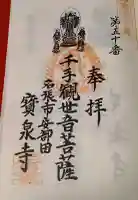 第五十番
奉拝
千手観世音菩薩
名張市安部田
寶泉寺